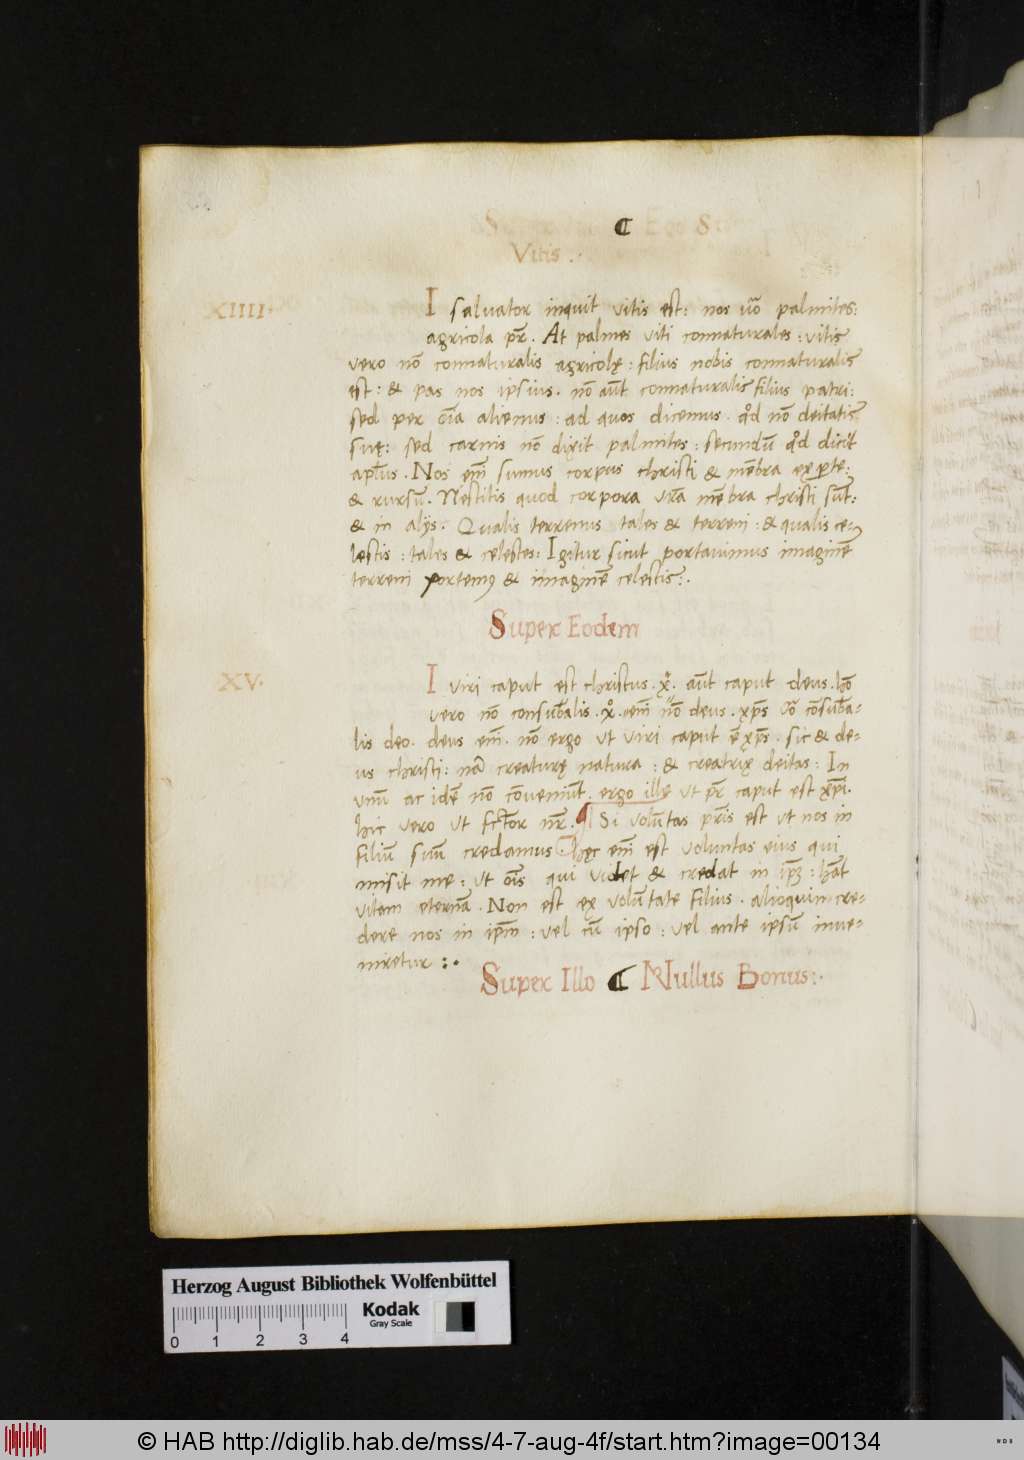 Super Ego Sum
Vitis .
XIIII.
I saluator inquit vitis est: nos uō palmites:
agricola pr̄. At palmes viti connaturales : vitis
vero nō connaturalis agricolę : filius nobis connaturalis
est : & pas nos ipsius. nō aūt connaturalis filius patri:
sed per oīa alienus : ad quos dicemus. qd̄ nō deitatis
suę: sed carnis nō dixit palmites : secundū qd̄ dicit
aptl̄us. Nos em̄ sumus corpus christi & mēbra ex parte:
& rursū. Nescitis quod corpora vr̄a mēbra christi sūt:
& in alijs. Qualis terrenus tales & terreni : & qualis ce-
lestis : tales & celestes: Igitur sicut portauimus imaginē
terreni portemus & imaginē celestis:.
Super Eodem
XV.
I viri caput est christus. χρ̄. aūt caput deus. hō
vero nō consubālis. χρ̄. em̄ nō deus. xp̄s uō cōsubā-
lis deo. deus em̄. nō ergo ut viri caput ē xp̄s. sic & de-
us christi: nā creaturę natura : & creatrix deitas: In
unū ac idē nō cōueniūt. ergo ille ut pr̄ caput est xp̄i.
hic vero ut fctōr nr̄. ¶ Si volūtas pr̄is est ut nos in
filiū suū credamus. hęc em̄ est voluntas eius qui
misit me : ut oīs qui videt & credat in ipm̄ : hāt
vitam eternā. Non est ex volūtate filius. alioquin cre-
dere nos in ipm̄ : vel cū ipso : vel ante ipsū inue-
niretur :.
Super Illo ¶ Nullus Bonus:.
Herzog August Bibliothek Wolfenbüttel
0 1 2 3 4
Kodak
Gray Scale
© HAB http://diglib.hab.de/mss/4-7-aug-4f/start.htm?image=00134